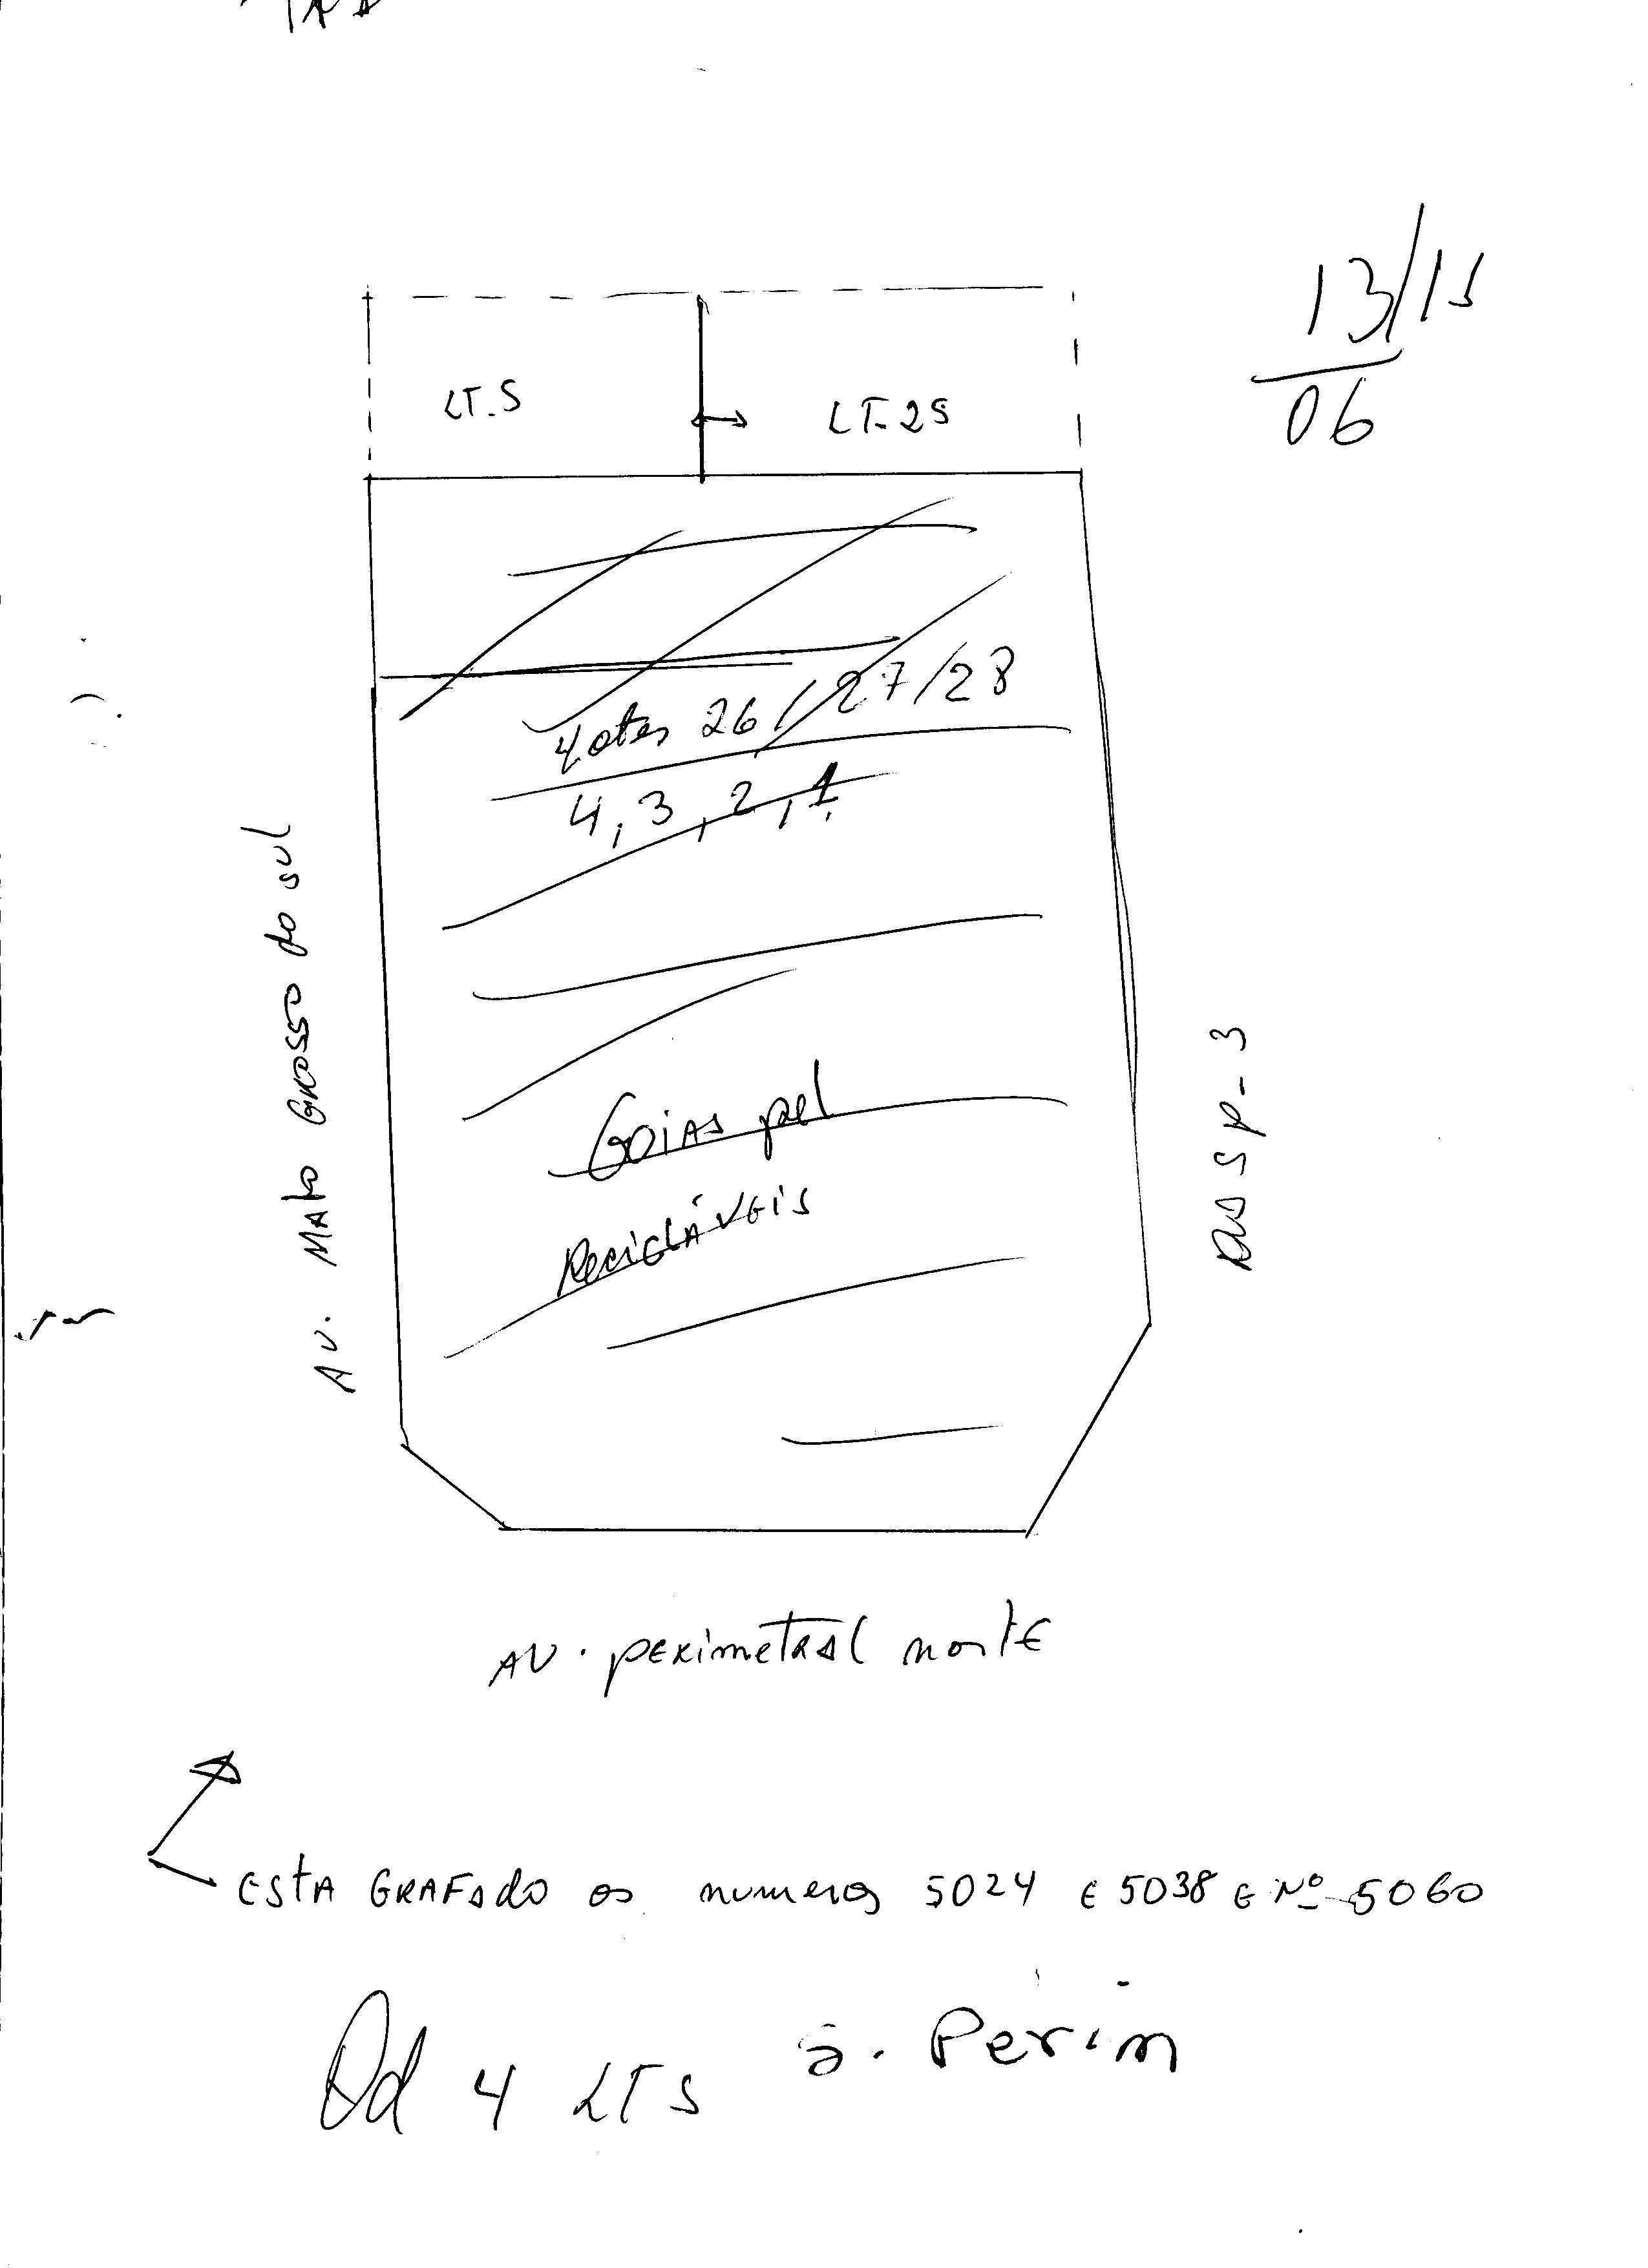 13/15
06
LT-5
LT-25
Lotes 26/27/28
4, 3, 2, 1
Av. Mato Grosso do sul
Goias pel
Recicláveis
SP-3
AV. perimetral norte
EstA GRAFAdo os numeros 5024 E 5038 E Nº 5060
Qd 4 LTS
Perim